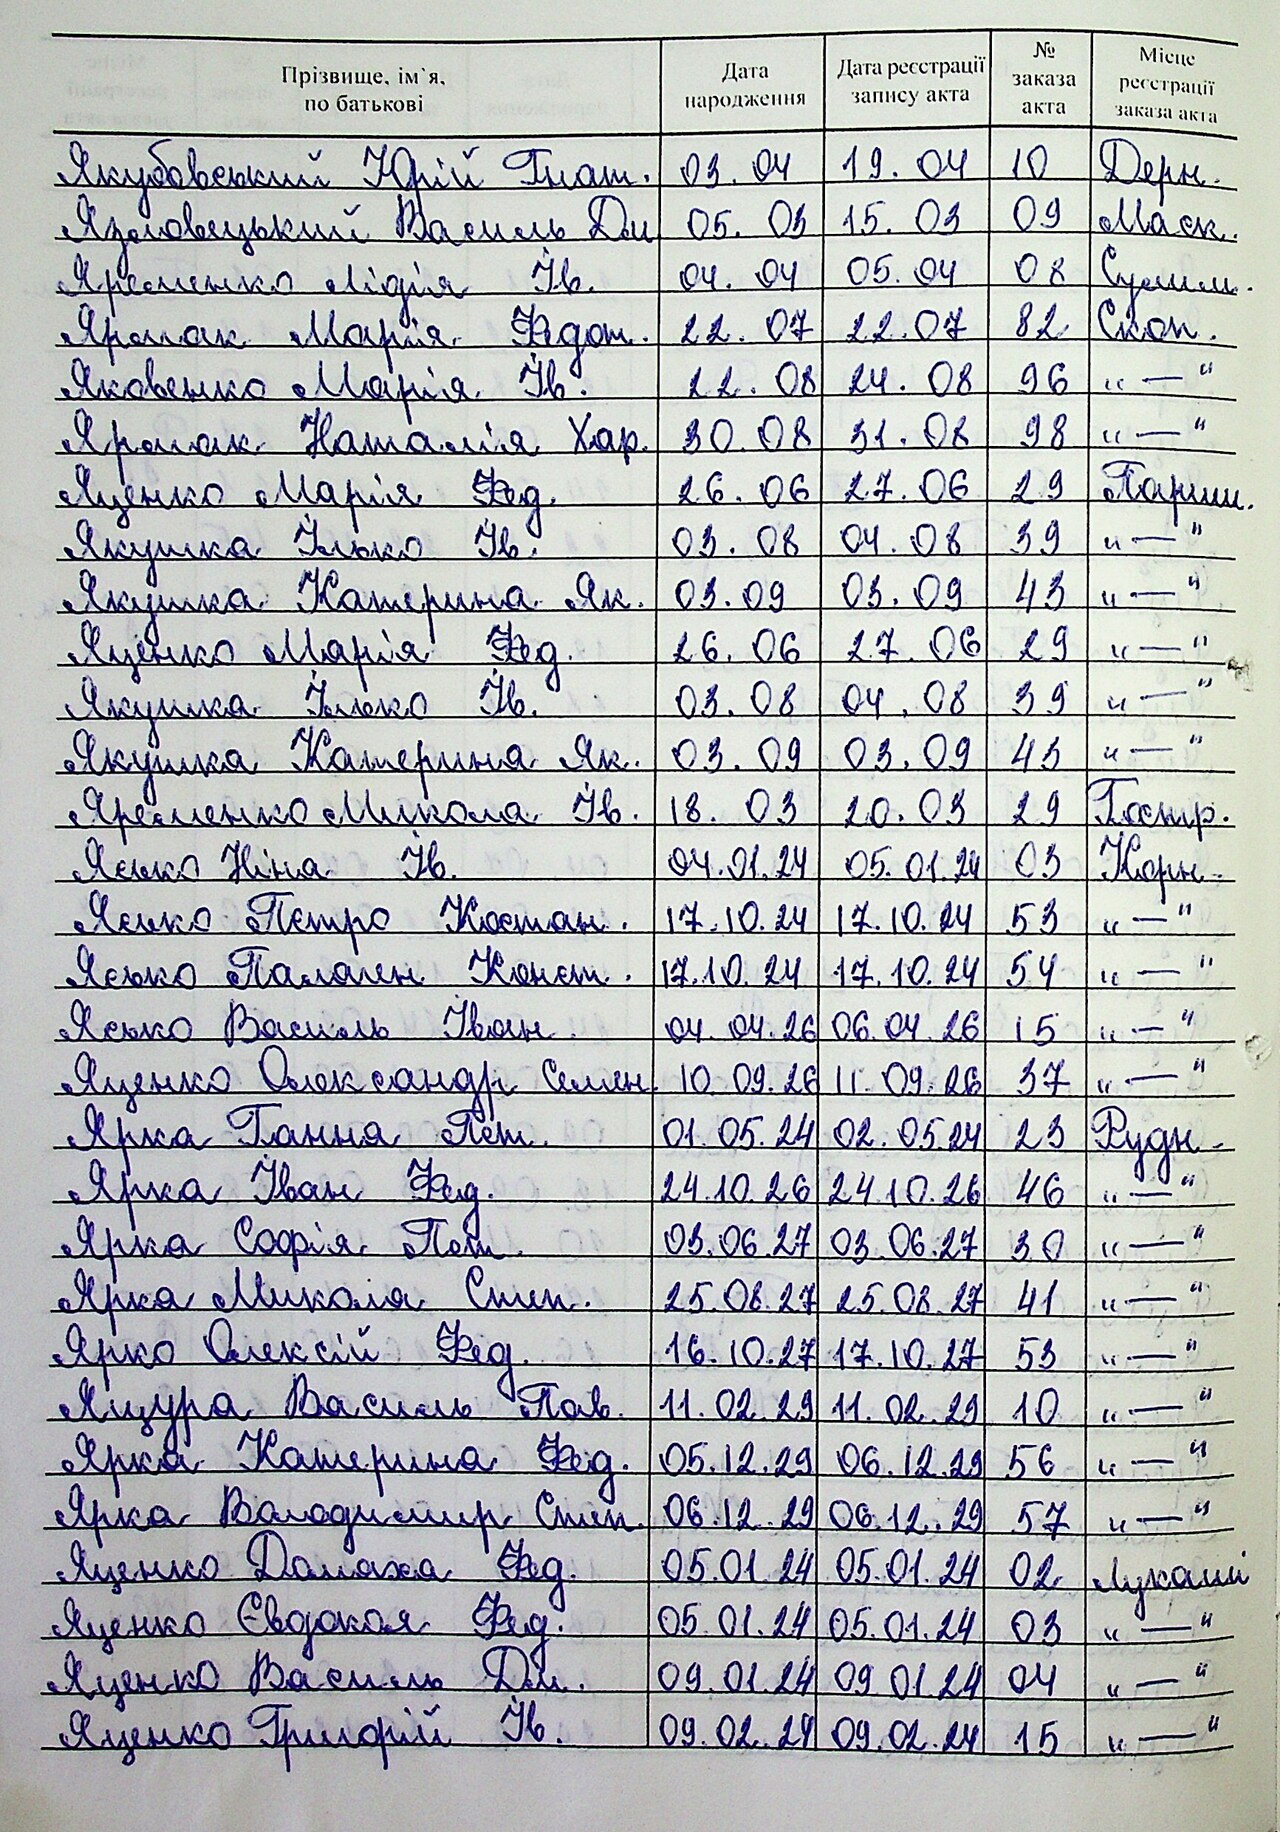 Прізвище, ім`я, по батькові Дата народження Дата реєстрації запису акта № заказа акта Місце реєстрації заказа акта
Якубовський Юрій Гнат. 03.04 19.04 10 Дерн.
Язловецький Василь Дм 05.03 15.03 09 Маск.
Яременко Лідія Ів. 04.04 05.04 08 Сулим.
Ярмак Марія Федот. 22.07 22.07 82 Скоп.
Яковенко Марія Ів. 22.08 24.08 96 „—“
Ярмак Наталія Хар. 30.08 31.08 98 „—“
Яценко Марія Фед. 26.06 27.06 29 Париш.
Якушка Ілько Ів. 03.08 04.08 39 „—“
Якушка Катерина Як. 03.09 03.09 43 „—“
Яценко Марія Фед. 26.06 27.06 29 „—“
Якушка Ілько Ів. 03.08 04.08 39 „—“
Якушка Катерина Як. 03.09 03.09 43 „—“
Яременко Микола Ів. 18.03 20.03 29 Гостр.
Ясько Ніна Ів. 04.01.24 05.01.24 03 Корн.
Ясько Петро Костан. 17.10.24 17.10.24 53 „—“
Ясько Палаген Конст. 17.10.24 17.10.24 54 „—“
Ясько Василь Іван. 04.04.26 06.04.26 15 „—“
Яценко Олександр Семен. 10.09.26 11.09.26 37 „—“
Ярка Ганна Пет. 01.05.24 02.05.24 23 Рудн.
Ярка Іван Фед. 24.10.26 24.10.26 46 „—“
Ярка Софія Пет. 03.06.27 03.06.27 30 „—“
Ярка Микола Степ. 25.08.27 25.08.27 41 „—“
Ярко Олексій Фед. 16.10.27 17.10.27 53 „—“
Яцура Василь Пав. 11.02.29 11.02.29 10 „—“
Ярка Катерина Фед. 05.12.29 06.12.29 56 „—“
Ярка Володимир Степ. 06.12.29 06.12.29 57 „—“
Яценко Домаха Фед. 05.01.24 05.01.24 02 Лукаші
Яценко Євдокая Фед. 05.01.24 05.01.24 03 „—“
Яценко Василь Дм. 09.01.24 09.01.24 04 „—“
Яценко Григорій Ів. 09.02.24 09.02.24 15 „—“